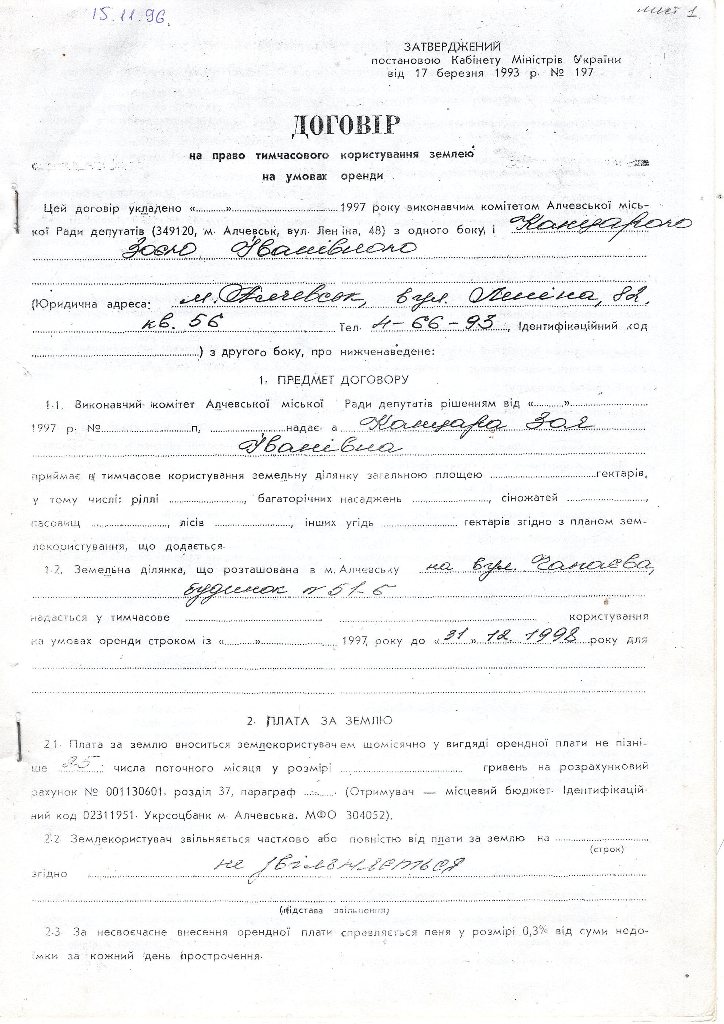 15.11.96.
лист 1
ЗАТВЕРДЖЕНИЙ
постановою Кабінету Міністрів України
від 17 березня 1993 р. № 197
ДОГОВІР
на право тимчасового користування землею
на умовах оренди
Цей договір укладено «..........» .......... 1997 року виконавчим комітетом Алчевської місь-
кої Ради депутатів (349120, м. Алчевськ, вул. Леніна, 48) з одного боку, і Канцарою
Зоєю Іванівною
(Юридична адреса: м. Алчевськ, вул. Леніна, 82,
кв. 56 Тел. 4-66-93, Ідентифікаційний код
..........) з другого боку, про нижченаведене:
1. ПРЕДМЕТ ДОГОВОРУ
1.1. Виконавчий комітет Алчевської міської Ради депутатів рішенням від «..........» ..........
1997 р. № .......... п, .......... надає а Канцара Зоя
Іванівна
приймає в тимчасове користування земельну ділянку загальною площею .......... гектарів,
у тому числі: ріллі .........., багаторічних насаджень .........., сіножатей ..........,
пасовищ .........., лісів .........., інших угідь .......... гектарів згідно з планом зем-
лекористування, що додається.
1.2. Земельна ділянка, що розташована в м. Алчевську на вул. Чапаєва,
будинок № 51-б
надається у тимчасове .......... користування
на умовах оренди строком із «..........» .......... 1997 року до «31» 12 1998 року для
2. ПЛАТА ЗА ЗЕМЛЮ
2.1. Плата за землю вноситься землекористувачем щомісячно у вигдяді орендної плати не пізні-
ше 25 числа поточного місяця у розмірі .......... гривень на розрахунковий
рахунок № 001130601. розділ 37, параграф .......... (Отримувач — місцевий бюджет. Ідентифікацій-
ний код 02311951. Укрсоцбанк м. Алчевська. МФО 304052).
2.2 Землекористувач звільняється частково або повністю від плати за землю на ..........
(строк)
згідно не звільняється
(підстава звільнення)
2.3 За несвоєчасне внесення орендної плати справляється пеня у розмірі 0,3% від суми недо-
їмки за кожний день прострочення.